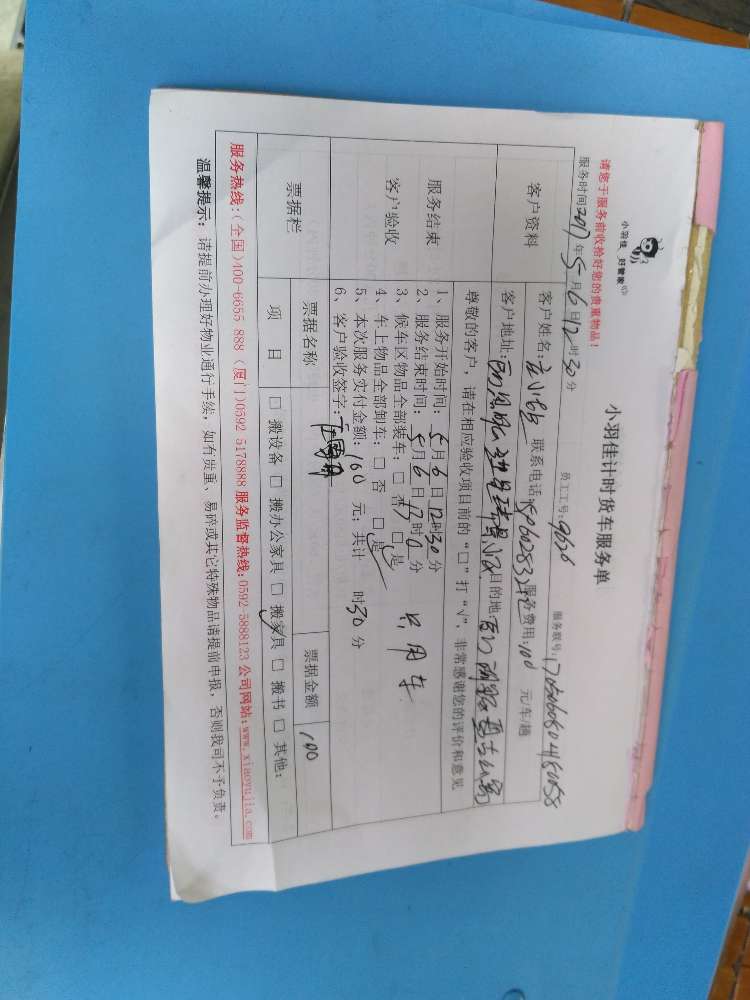 请您于服务前收拾好您的贵重物品！
小羽佳 好管家
小羽佳计时货车服务单
服务时间2017年5月6日12时30分 员工工号：9626 服务联号：
客户资料
客户姓名： 联系电话 服务费用：100 元/车/趟
客户地址： 目的地
尊敬的客户，请在相应验收项目前的“□”打“√”，非常感谢您的评价和意见
服务结束
客户验收
1、服务开始时间：5月6日12时30分
2、服务结束时间：5月6日13时0分
3、候车区物品全部装车：□否 □是
4、车上物品全部卸车：□否 □是
5、本次服务实付金额：100 元；共计 时30分
6、客户验收签字：
只用车
票据栏
票据名称 票据金额 100
项目 □搬设备 □搬办公家具 □搬家具 □搬书 □其他：
服务热线：（全国）400-6655 888（厦门）0592 5178888 服务监督热线：0592-5888123 公司网站：www.xiaoyujia.com
温馨提示：请提前办理好物业通行手续，如有贵重、易碎或其它特殊物品请提前申报，否则我司不予负责。